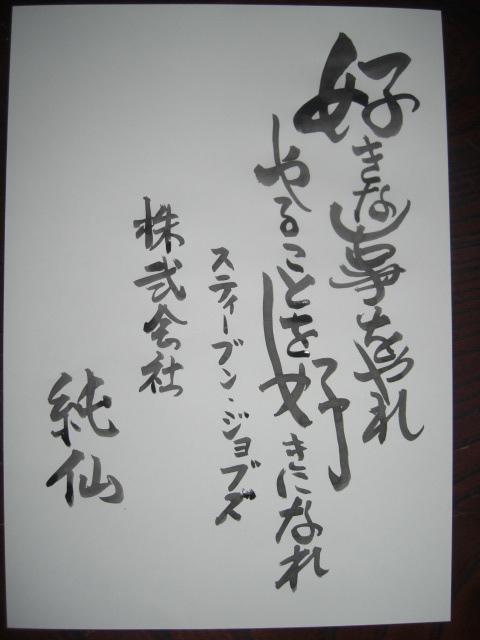 好きな事をやれ
やることを好きになれ
スティーブン・ジョブズ
株式会社
純仙